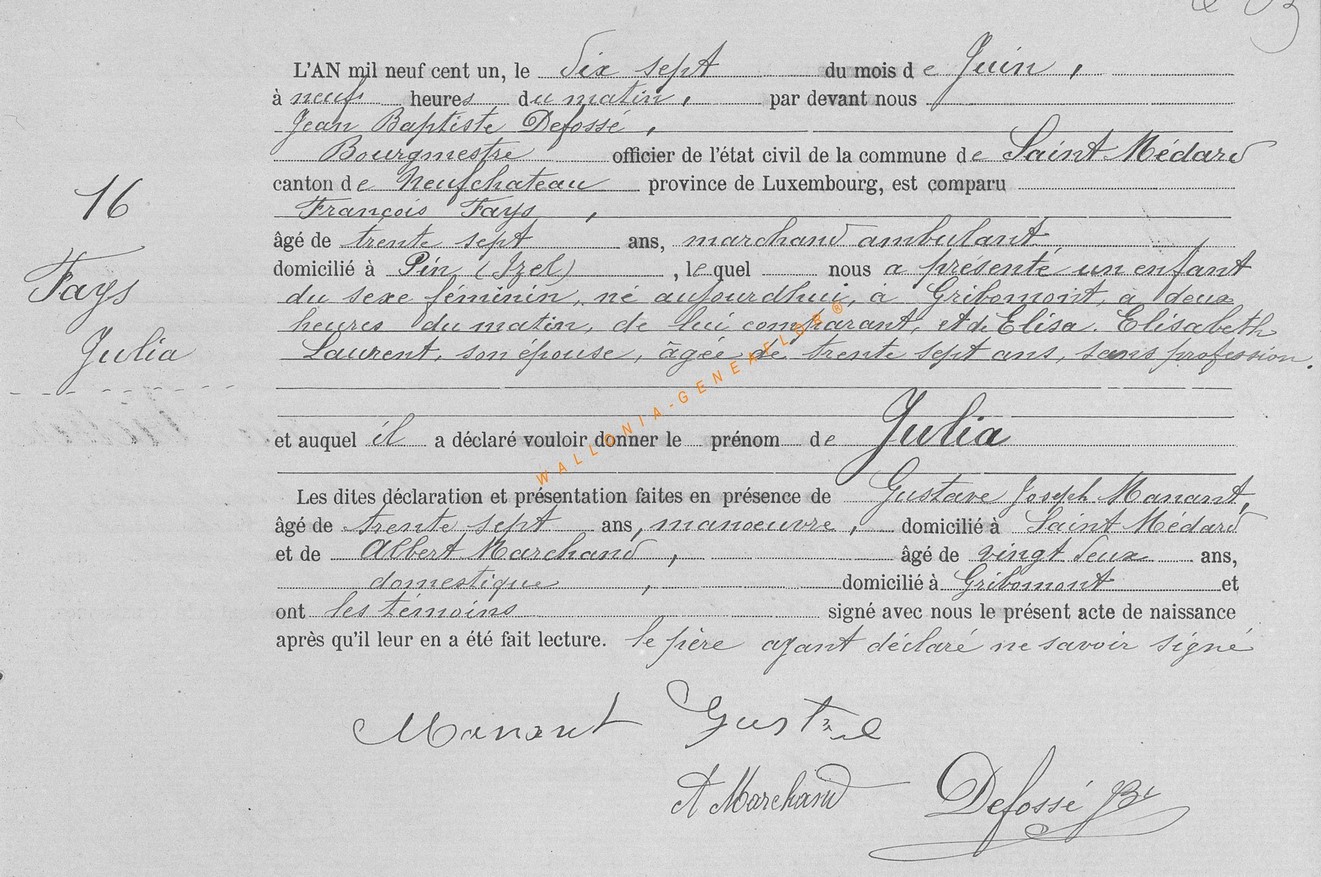 L'AN mil neuf cent un, le dix sept du mois de Juin,
à neuf heures du matin, par devant nous
Jean Baptiste Defossé,
Bourgmestre officier de l'état civil de la commune de Saint Médard
canton de Neufchateau province de Luxembourg, est comparu
16
François Fays,
âgé de trente sept ans, marchand ambulant
domicilié à Pin (Izel), lequel nous a présenté un enfant
Fays
du sexe féminin, né aujourdhui, à Gribomont, à deux
heures du matin, de lui comparant, et de Elisa. Elisabeth
Julia
Laurent, son épouse, âgée de trente sept ans, sans profession.
WALLONIA-GENEAFLOR®
et auquel il a déclaré vouloir donner le prénom de Julia
Les dites déclaration et présentation faites en présence de Gustave Joseph Manant,
âgé de trente sept ans, manoeuvre, domicilié à Saint Médard
et de Albert Marchand, âgé de vingt deux ans,
domestique, domicilié à Gribomont et
ont les témoins signé avec nous le présent acte de naissance
après qu'il leur en a été fait lecture. le père ayant déclaré ne savoir signé
Manant Gustave
A Marchand Defossé JB